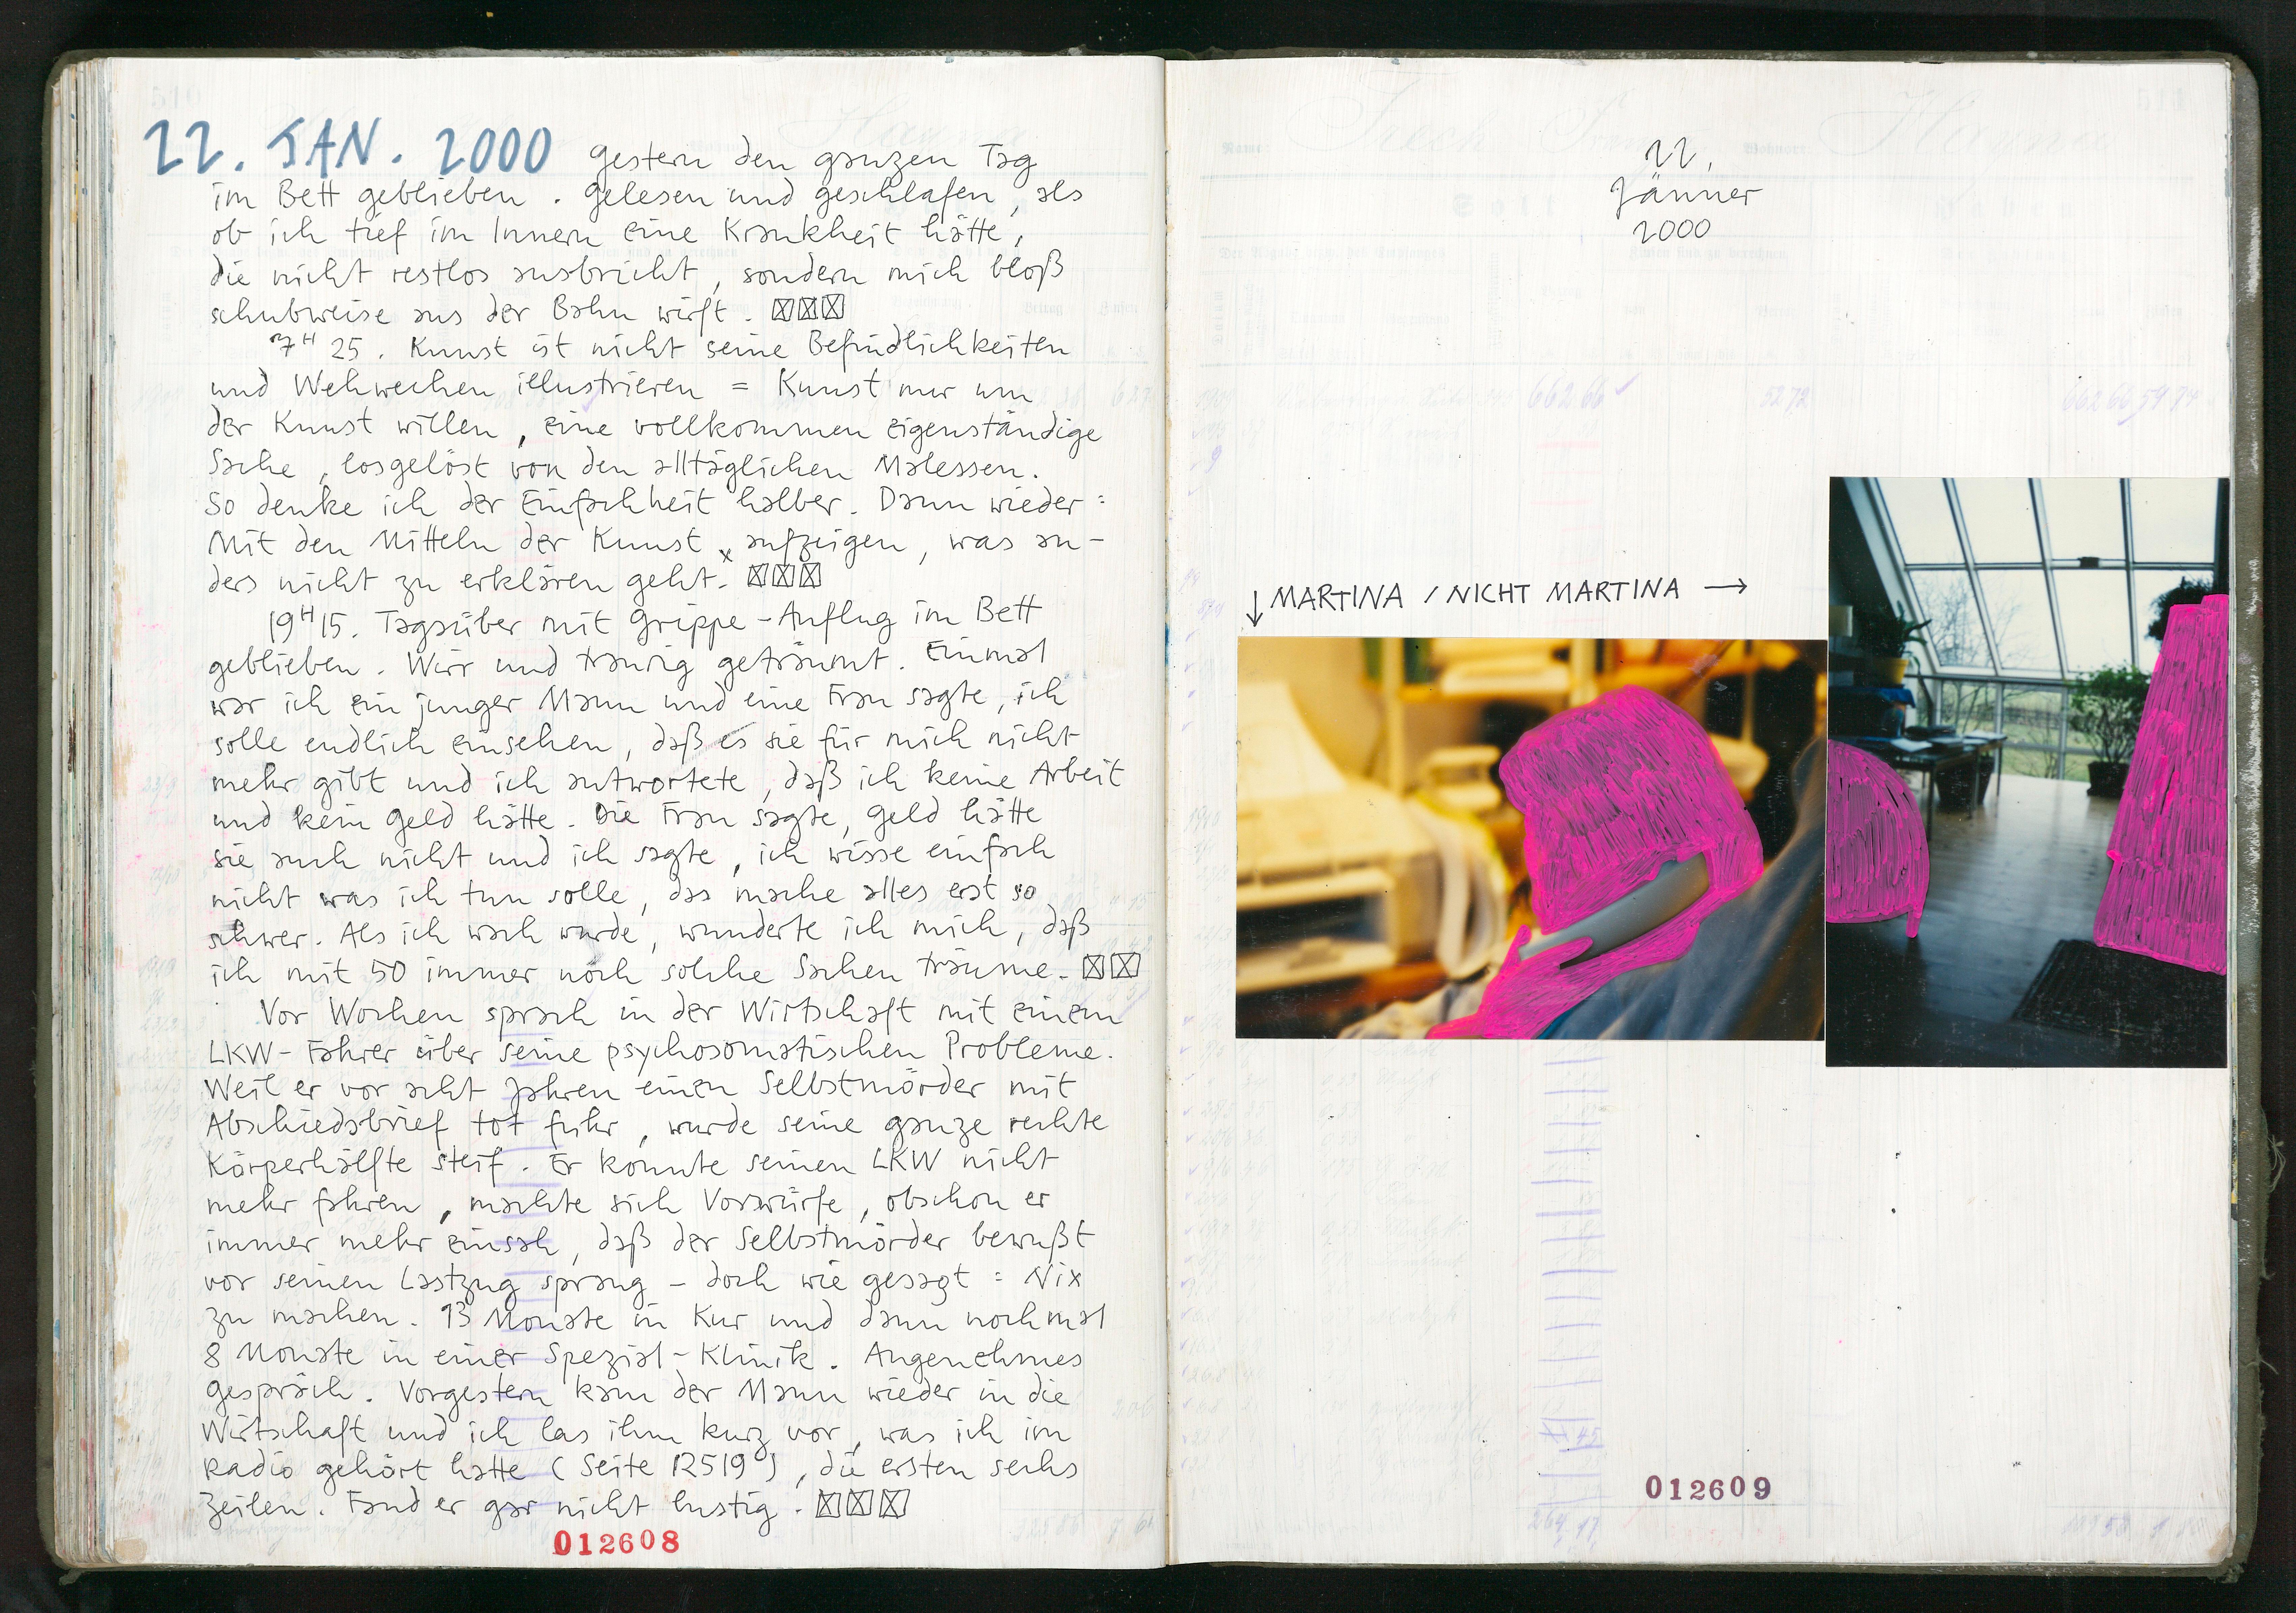 22. JAN. 2000 gestern den ganzen Tag
im Bett geblieben. gelesen und geschlafen, als
ob ich tief im Innern eine Krankheit hätte,
die nicht restlos ausbricht, sondern mich bloß
schubweise aus der Bahn wirft. ☒☒☒
7H 25. Kunst ist nicht seine Befindlichkeiten
und Wehwechen illustrieren = Kunst nur um
der Kunst willen, eine vollkommen eigenständige
Sache, losgelöst von den alltäglichen Malessen.
So denke ich der Einfachheit halber. Dann wieder:
Mit den Mitteln der Kunst x aufzeigen, was an-
ders nicht zu erklären geht.x ☒☒☒
19H15. Tagsüber mit Grippe-Anflug im Bett
geblieben. Wirr und traurig geträumt. Einmal
war ich ein junger Mann und eine Frau sagte, ich
solle endlich einsehen, daß es sie für mich nicht
mehr gibt und ich antwortete, daß ich keine Arbeit
und kein Geld hätte. Die Frau sagte, Geld hätte
sie auch nicht und ich sagte, ich wisse einfach
nicht was ich tun solle, das mache alles erst so
schwer. Als ich wach wurde, wunderte ich mich, daß
ich mit 50 immer noch solche Sachen träume. ☒☒
Vor Wochen sprach in der Wirtschaft mit einem
LKW-Fahrer über seine psychosomatischen Probleme.
Weil er vor acht Jahren einen Selbstmörder mit
Abschiedsbrief tot fuhr, wurde seine ganze rechte
Körperhälfte steif. Er konnte seinen LKW nicht
mehr fahren, machte sich Vorwürfe, obschon er
immer mehr einsah, daß der Selbstmörder bewußt
vor seinen Lastzug sprang - doch wie gesagt: Nix
zu machen. 13 Monate in Kur und dann nochmal
8 Monate in einer Spezial-Klinik. Angenehmes
Gespräch. Vorgestern kam der Mann wieder in die
Wirtschaft und ich las ihm kurz vor, was ich im
Radio gehört hatte (Seite 12519), die ersten sechs
Zeilen. Fand er gar nicht lustig. ☒☒☒
012608
22.
Jänner
2000
↓ MARTINA / NICHT MARTINA →
012609